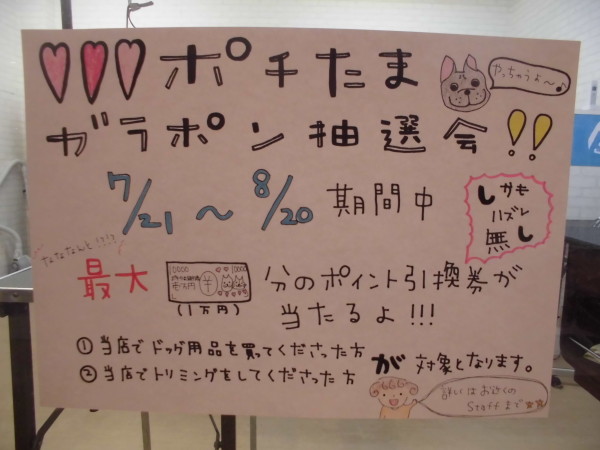 ポチたま
やっちゃうよ〜♪
ガラポン抽選会!!
7/21〜8/20期間中
しかも
ハズレ
無し
なななんと!?!?
最大
10000
10000
壱万円
(1万円)
分のポイント引換券が
当たるよ!!!
①当店でドッグ用品を買ってくださった方
②当店でトリミングをしてくださった方
が対象となります。
詳しくはお近くの
Staffまで☆☆